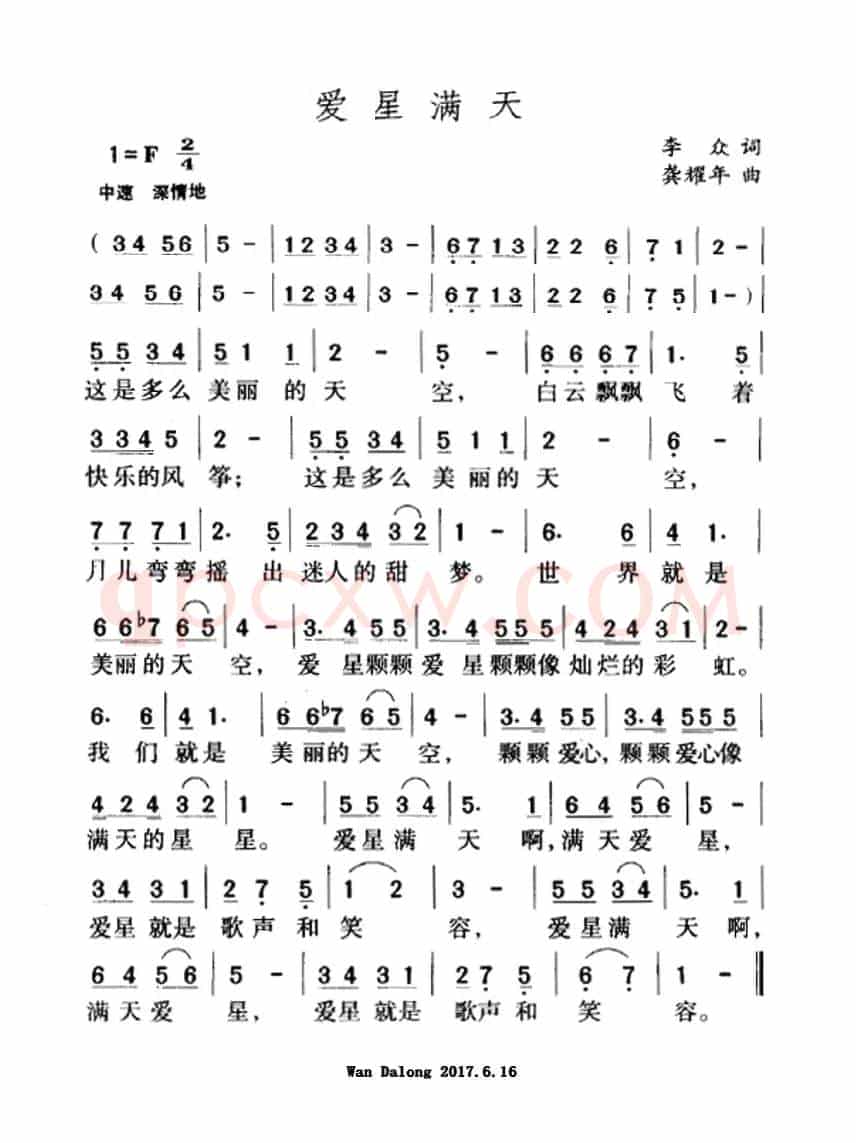 爱星满天
1=F 2/4
李 众 词
中速 深情地
龚耀年 曲
( 34 56 | 5 - | 1234 | 3 - | 6713 | 22 6 | 7 1 | 2 - |
34 56 | 5 - | 1234 | 3 - | 6713 | 22 6 | 7 5 | 1 - ) |
55 34 | 51 1 | 2 - | 5 - | 66 67 | 1. 5 |
这是多么 美丽 的 天 空, 白云飘飘 飞 着
3345 | 2 - | 55 34 | 511 | 2 - | 6 - |
快乐的风 筝; 这是多么 美丽的 天 空,
77 71 | 2. 5 | 234 32 | 1 - | 6. 6 | 4 1. |
月儿弯弯 摇 出 迷人的甜 梦。 世 界 就 是
66♭7 65 | 4 - | 3. 4 55 | 3. 4 555 | 424 31 | 2 - |
美丽的天 空, 爱 星颗颗 爱 星颗颗像 灿烂的彩 虹。
6. 6 | 4 1. | 66♭7 65 | 4 - | 3. 4 55 | 3. 4 555 |
我 们 就 是 美丽的天 空, 颗颗爱心, 颗颗爱心像
424 32 | 1 - | 55 34 | 5. 1 | 64 56 | 5 - |
满天的星 星。 爱星满 天 啊, 满天爱 星,
34 31 | 27 5 | 1 2 | 3 - | 55 34 | 5. 1 |
爱星就是 歌声和 笑 容, 爱星满 天 啊,
64 56 | 5 - | 34 31 | 27 5 | 6 7 | 1 - ‖
满天爱 星, 爱星就是 歌声和 笑 容。
qpcxw.COM
Wan Dalong 2017.6.16